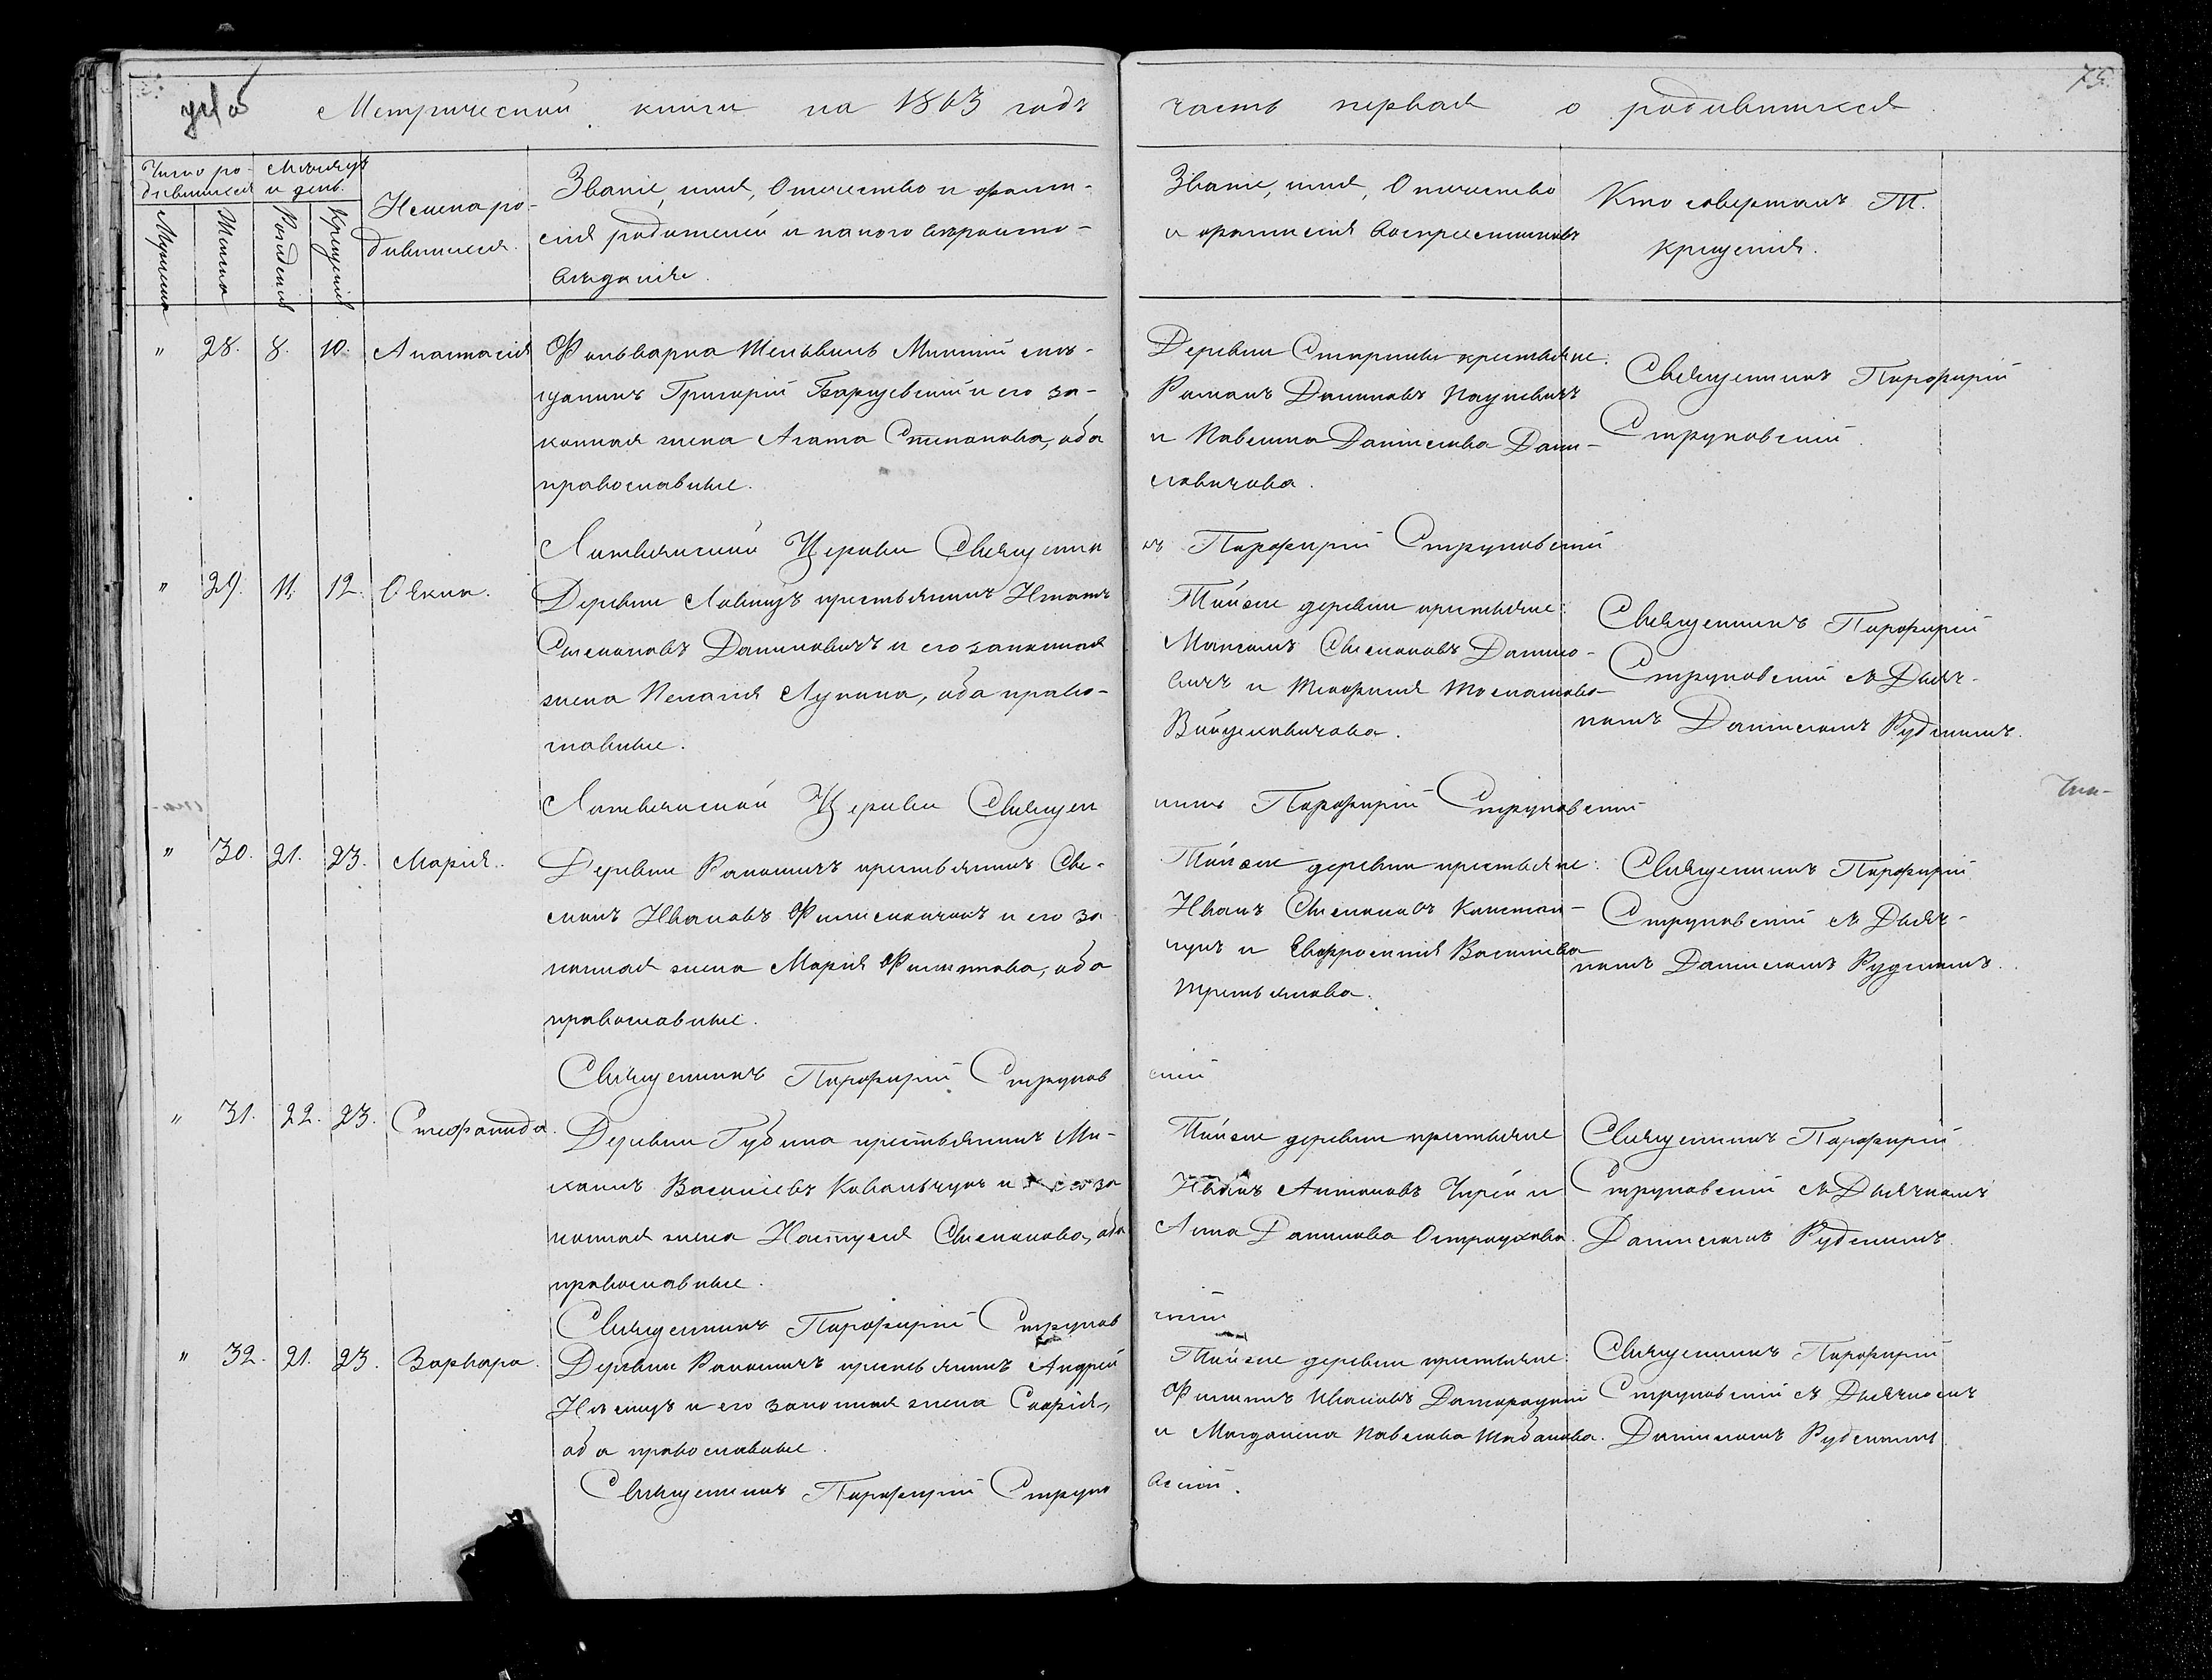 75.
Метрической книги на 1863 годъ
часть первая о родившихся
Число ро-
дившихся
Мѣсяцъ
и день.
Мужеска
Женска
Рожденія
Крещенія
Имена ро-
дившихся.
Званіе, имя, Отечество и фами-
лія родителей и какого вѣроиспо-
вѣданія.
Званіе, имя, Отчество
и фамилія воспреемниковъ
Кто совершалъ Т.
крещенія.
" 28. 8. 10. Анастасія
Фольварка Мински мѣ-
щанинъ Григорій Барщевскій и его за-
конная жена Агата Степанова, оба
православные.
Деревни крестьяне:
Романъ Даниловъ
и Даніилова Дани-
ловичова.
Священникъ Порфирій
Струковскій.
Литвянской Церкви Священни
къ Порфирій Струковскій
" 29. 11. 12. Овкия.
Деревни Ловищъ крестьянинъ Игнатъ
Семеновъ Даниловичъ и его законная
жена Пелагія Лукина, оба право-
славные.
Тойже деревни крестьяне:
Максимъ Семеновъ Данило-
вичъ и
Войцеховичова.
Священникъ Порфирій
Струковскій съ Дьяч-
комъ Даніиломъ Рудскимъ.
Литвянской Церкви Священ
никъ Порфирій Струковскій
" 30. 21. 23. Марія.
Деревни крестьянинъ Се-
менъ Ивановъ и его за
конная жена Марія Филиппова, оба
православные.
Тойже деревни крестьяне:
Иванъ Семеновъ Констан-
цукъ и Евфросинія Василіева
Третьякова.
Священникъ Порфирій
Струковскій съ Дьяч-
комъ Даніиломъ Рудскимъ.
Священникъ Порфирій Струков
скій
" 31. 22. 23. Стефанида.
Деревни Губина крестьянинъ Ми-
хаилъ Василіевъ Ковальчукъ и его за
конная жена Настусія Семенова, оба
православные.
Тойже деревни крестьяне
Иванъ Антоновъ Чирей и
Анна Данилова Остроухова.
Священникъ Порфирій
Струковскій съ Дьячкомъ
Даніиломъ Рудскимъ.
Священникъ Порфирій Струков
скій
" 32. 21. 23. Варвара.
Деревни крестьянинъ Андрей
и его законная жена Софія,
оба православные.
Тойже деревни крестьяне:
Филиппъ Ивановъ
и Магдалина Павлова Шабанова.
Священникъ Порфирій
Струковскій съ Дьячкомъ
Даніиломъ Рудскимъ
Священникъ Порфирій Струко
вскій.